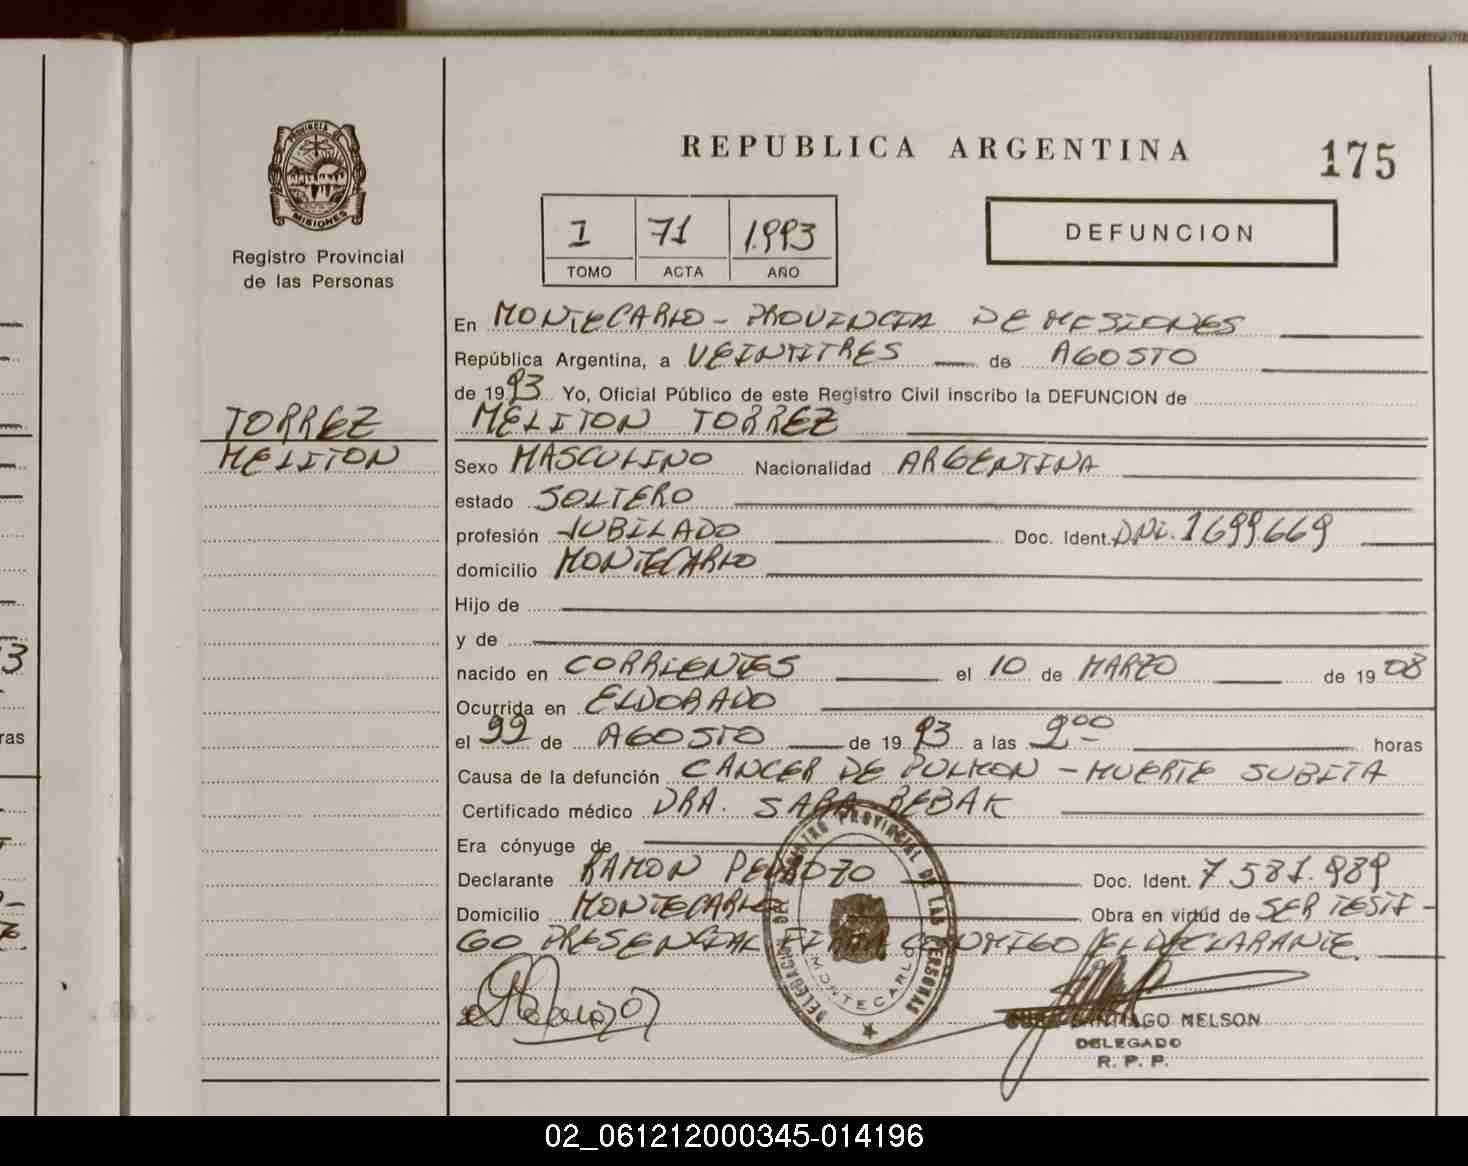 REPUBLICA ARGENTINA
175
PROVINCIA DE
MISIONES
Registro Provincial
de las Personas
1 71 1.993
TOMO ACTA AÑO
DEFUNCION
En MONTECARLO - PROVINCIA DE MISIONES
República Argentina, a VEINTITRES de AGOSTO
de 1993 Yo, Oficial Público de este Registro Civil inscribo la DEFUNCION de
TORREZ
MELITON TORREZ
MELITON
Sexo MASCULINO Nacionalidad ARGENTINA
estado SOLTERO
profesión JUBILADO Doc. Ident. DNI. 1699.669
domicilio MONTECARLO
Hijo de
y de
nacido en CORRIENTES el 10 de MARZO de 1908
Ocurrida en ELDORADO
el 22 de AGOSTO de 1993 a las 2:00 horas
Causa de la defunción CANCER DE PULMON - MUERTE SUBITA
Certificado médico DRA. SARA REBAK
Era cónyuge de
Declarante RAMON PEDROZO Doc. Ident. 7.581.989
Domicilio MONTECARLO Obra en virtud de SER TESTI-
GO PRESENCIAL FIRMA CONMIGO EL DECLARANTE.
DELEGACION DEL REGISTRO PROVINCIAL DE LAS PERSONAS
MONTECARLO
SANTIAGO NELSON
DELEGADO
R. P. P.
3
ras
02_061212000345-014196